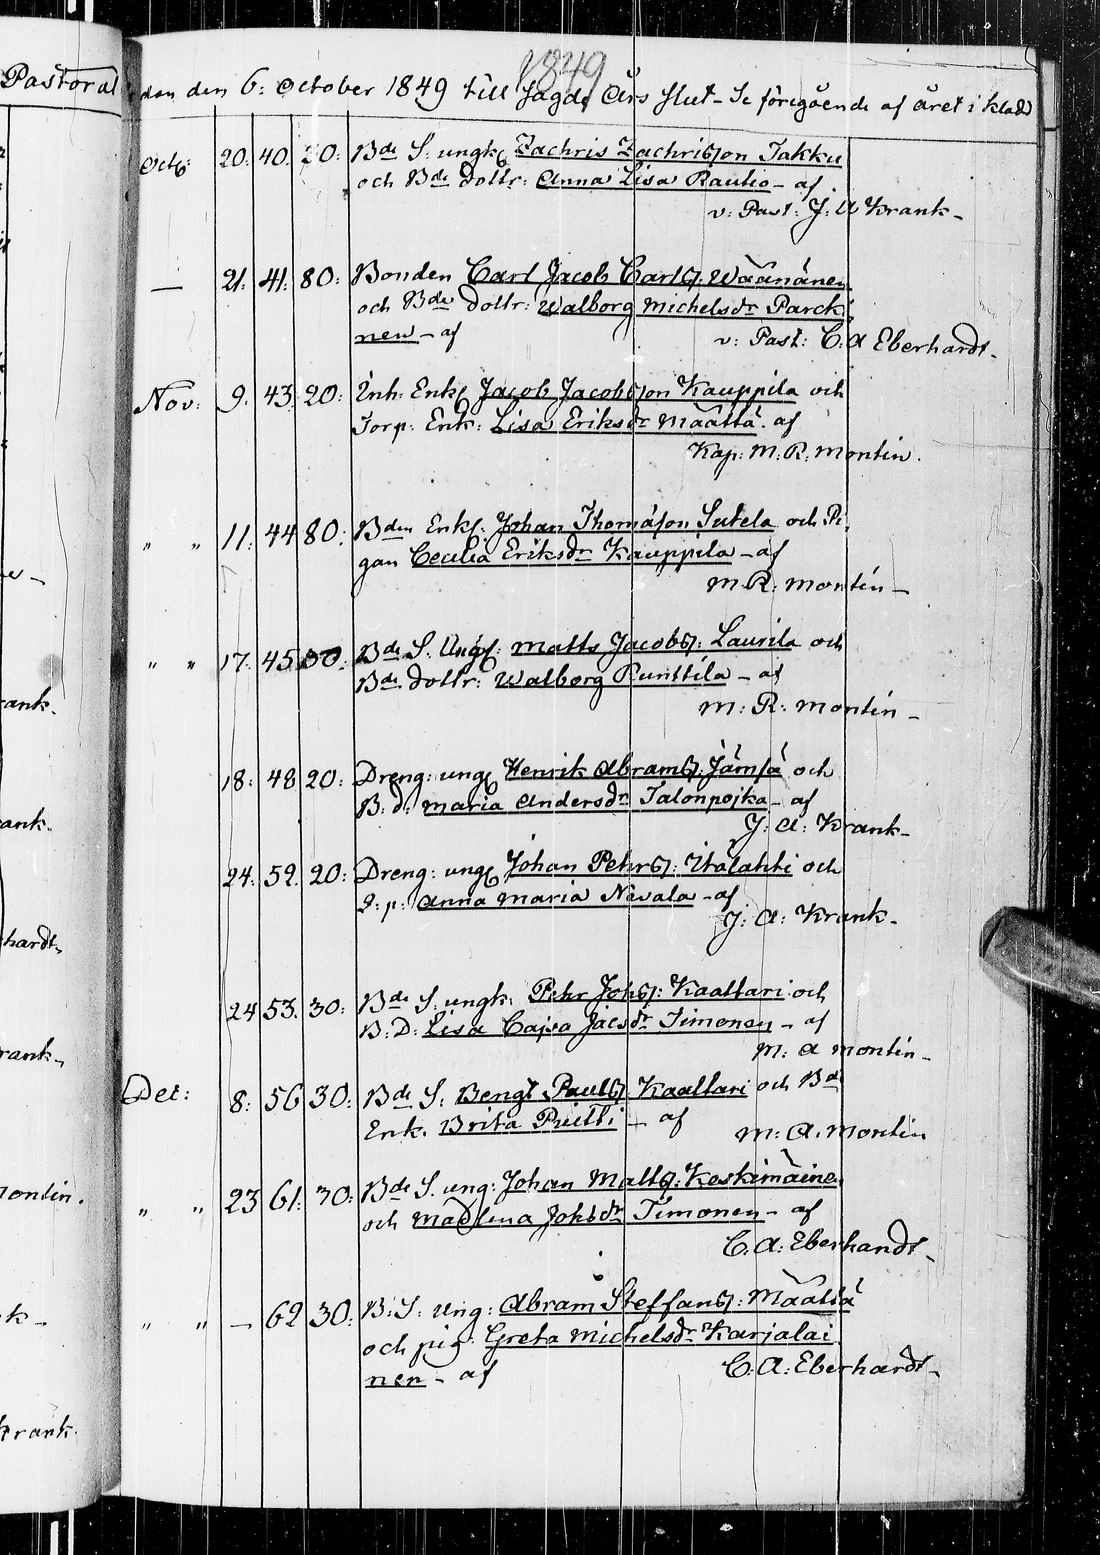 1849
Pastoral
dan den 6: October 1849 till Sagde Års Slut - Se föregående af året i kladd
Octb: 20. 40. 20: Bde S. ungk. Zachris Zachrisson Takku
och Bde dottr: Anna Lisa Rautio - af
v: Past: J: A Krank -
— 21. 41. 80: Bonden Carl Jacob Carls: Wäänänen
och Bde dottr: Walborg Michelsdr Parcki
nen - af v: Past: C: A Eberhardt -
Nov: 9. 43. 20: Inh: Enkl Jacob Jacobsson Kauppila och
Torp: Enk: Lisa Eriksdr Määttä. af
Kap: M. R. Montin.
" " 11. 44 80: Bden Enkl: Johan Thomasson Sutela och Pi
gan Cecilia Eriksdr Kauppila - af
M. R: Montin -
" " 17. 45. Bde S. Ungk: Matts Jacobs: Laurila och
Bde dottr: Walborg Runttila - af
M: R: Montin -
18: 48 20: Dreng: ung Henrik Abrams: Jämsä och
B: d: Maria Andersdr Talonpojka - af
J: A: Krank -
24. 52. 20: Dreng: ung Johan Pehrs: Italahti och
Anna Maria Nevala - af
J: A: Krank -
24 53. 30: Bde S. ungk. Pehr Johs: Kaattari och
B: D: Lisa Cajsa Jacsdr Timonen - af
M: A Montin -
Det: 8: 56 30: Bde S: Bengt Pauls Kaattari och Bd
Enk. Brita Pritti - af M: A. Montin
" " 23 61. 30: Bde S. ung: Johan Matts: Keskimäine
och Madlena Johsdr Timonen - af
C: A: Eberhardt -
" " — 62 30: B: S: Ung: Abram Steffans: Määttä
och pig: Greta Michelsdr Karjalai
nen - af C: A: Eberhardt -
rank.
ank.
hardt,
rank -
ontin.
k -
Krank.